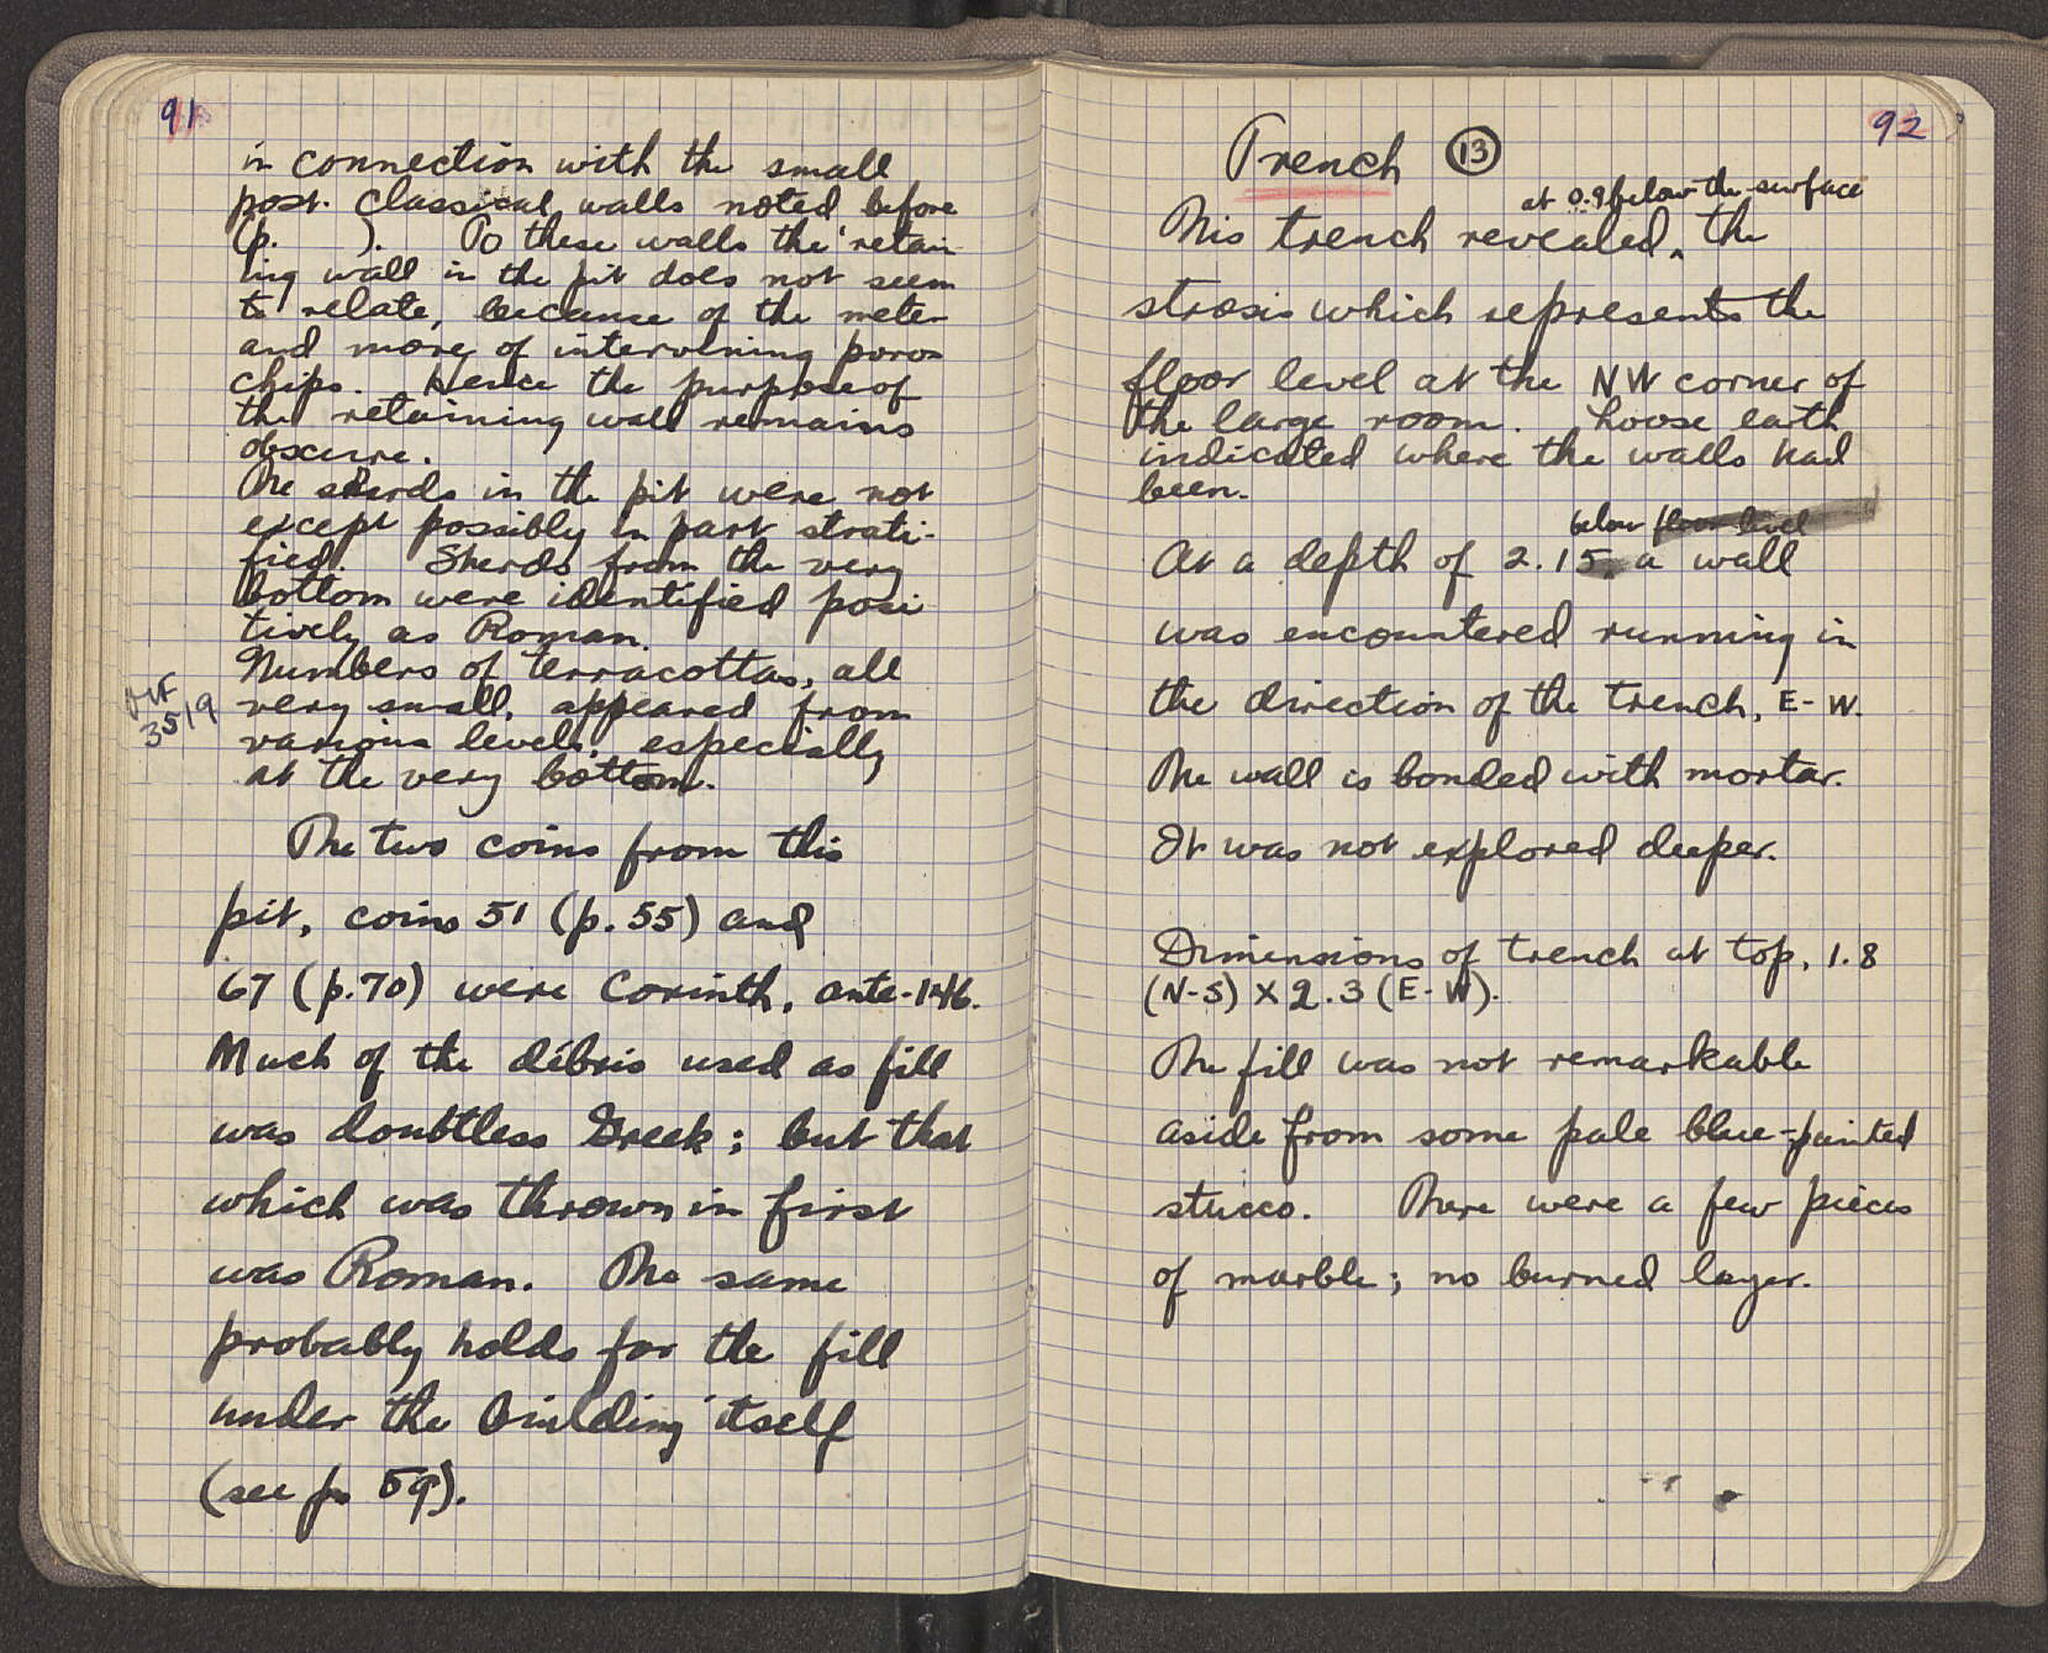 91
in connection with the small
post. Classical walls noted before
(p.      ). To these walls the retain-
ing wall in the pit does not seem
to relate, because of the meter
and more of intervening poros
chips. Hence the purpose of
the retaining wall remains
obscure.
The sherds in the pit were not
except possibly in part strati-
fied. Sherds from the very
bottom were identified posi-
tively as Roman.
Numbers of terracottas, all
MF
3519
very small, appeared from
various levels, especially
at the very bottom.
The two coins from this
pit, coins 51 (p. 55) and
67 (p. 70) were Corinth, ante-146.
Much of the débris used as fill
was doubtless Greek; but that
which was thrown in first
was Roman. The same
probably holds for the fill
under the building itself
(see p. 59).
92
Trench 13
at 0.9 below the surface
This trench revealed ‸ the
strosis which represents the
floor level at the NW corner of
the large room. Loose earth
indicated where the walls had
been.
below floor level
At a depth of 2.15 ‸ a wall
was encountered running in
the direction of the trench, E-W.
The wall is bonded with mortar.
It was not explored deeper.
Dimensions of trench at top, 1.8
(N-S) x 2.3 (E-W).
The fill was not remarkable
aside from some pale blue-painted
stucco. There were a few pieces
of marble; no burned layer.